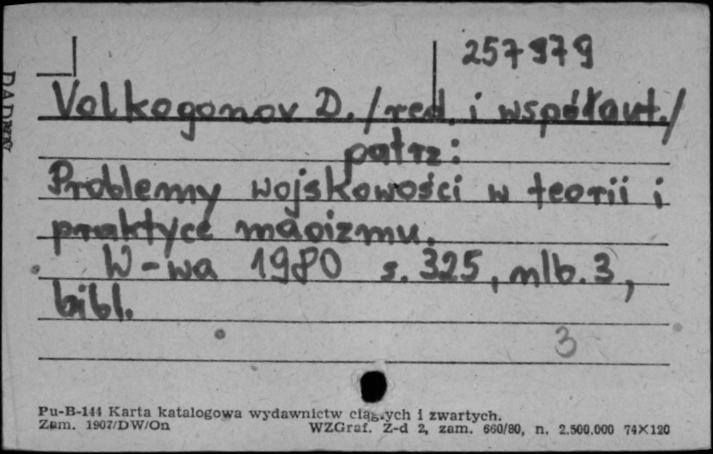 257979
Volkogonov D. /red. i współaut./
patrz:
Problemy wojskowości w teorii i
praktyce maoizmu.
W-wa 1980 s. 325, nlb. 3,
bibl.
3
Pu-B-144 Karta katalogowa wydawnictw ciągłych i zwartych.
Zam. 1907/DW/On WZGraf. Z-d 2, zam. 660/80, n. 2.500.000 74×120